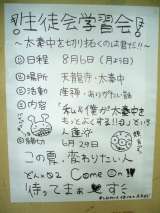 !!生徒会学習会!!
～太秦中を切り拓くのは君だ!!～
①日程 8月6日(月)5日
②場所 天龍寺・太秦中
③活動 座禅・ありがたい話
④内容 「私や僕が太秦中を
もっとよくする!!」という
人
⑤締切 6月29日
この夏、変わりたい人
Come On!!
待ってまぁす